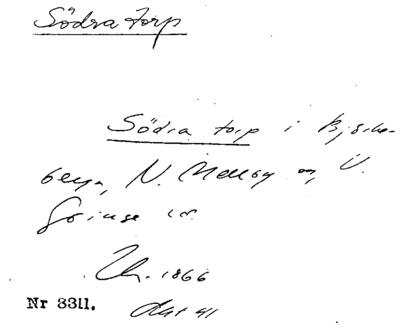 Södra torp
Södra torp i Björke-
berga, N. Mellby o, V.
Grinse sn
Uh. 1866
Nr 3311. dat 41